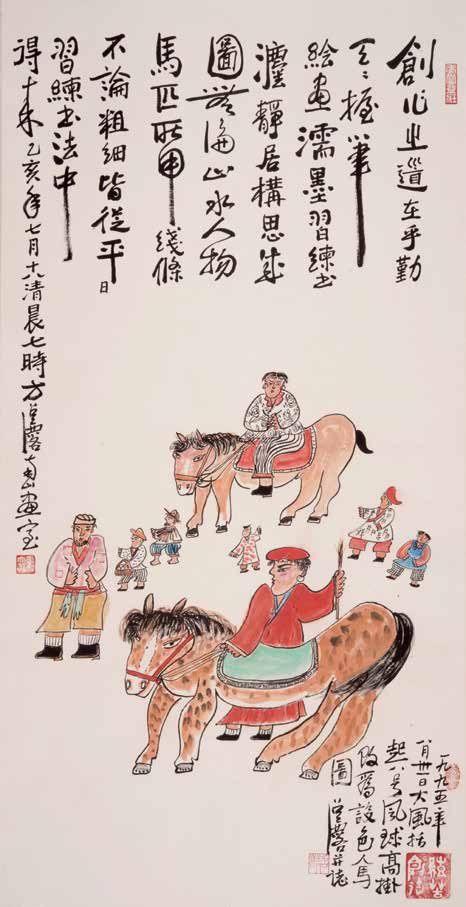 創作之道在乎勤
天天握筆
繪畫濡墨習練書
灋靜居構思成
圖無論山水人物
馬匹所用綫條
不論粗細皆從平日
習練書法中
得來乙亥年七月十八清晨七時方召麐畫室
一九九五年
八月卅一日大風括
起八号風球高掛
改設色人馬
圖召麐并誌